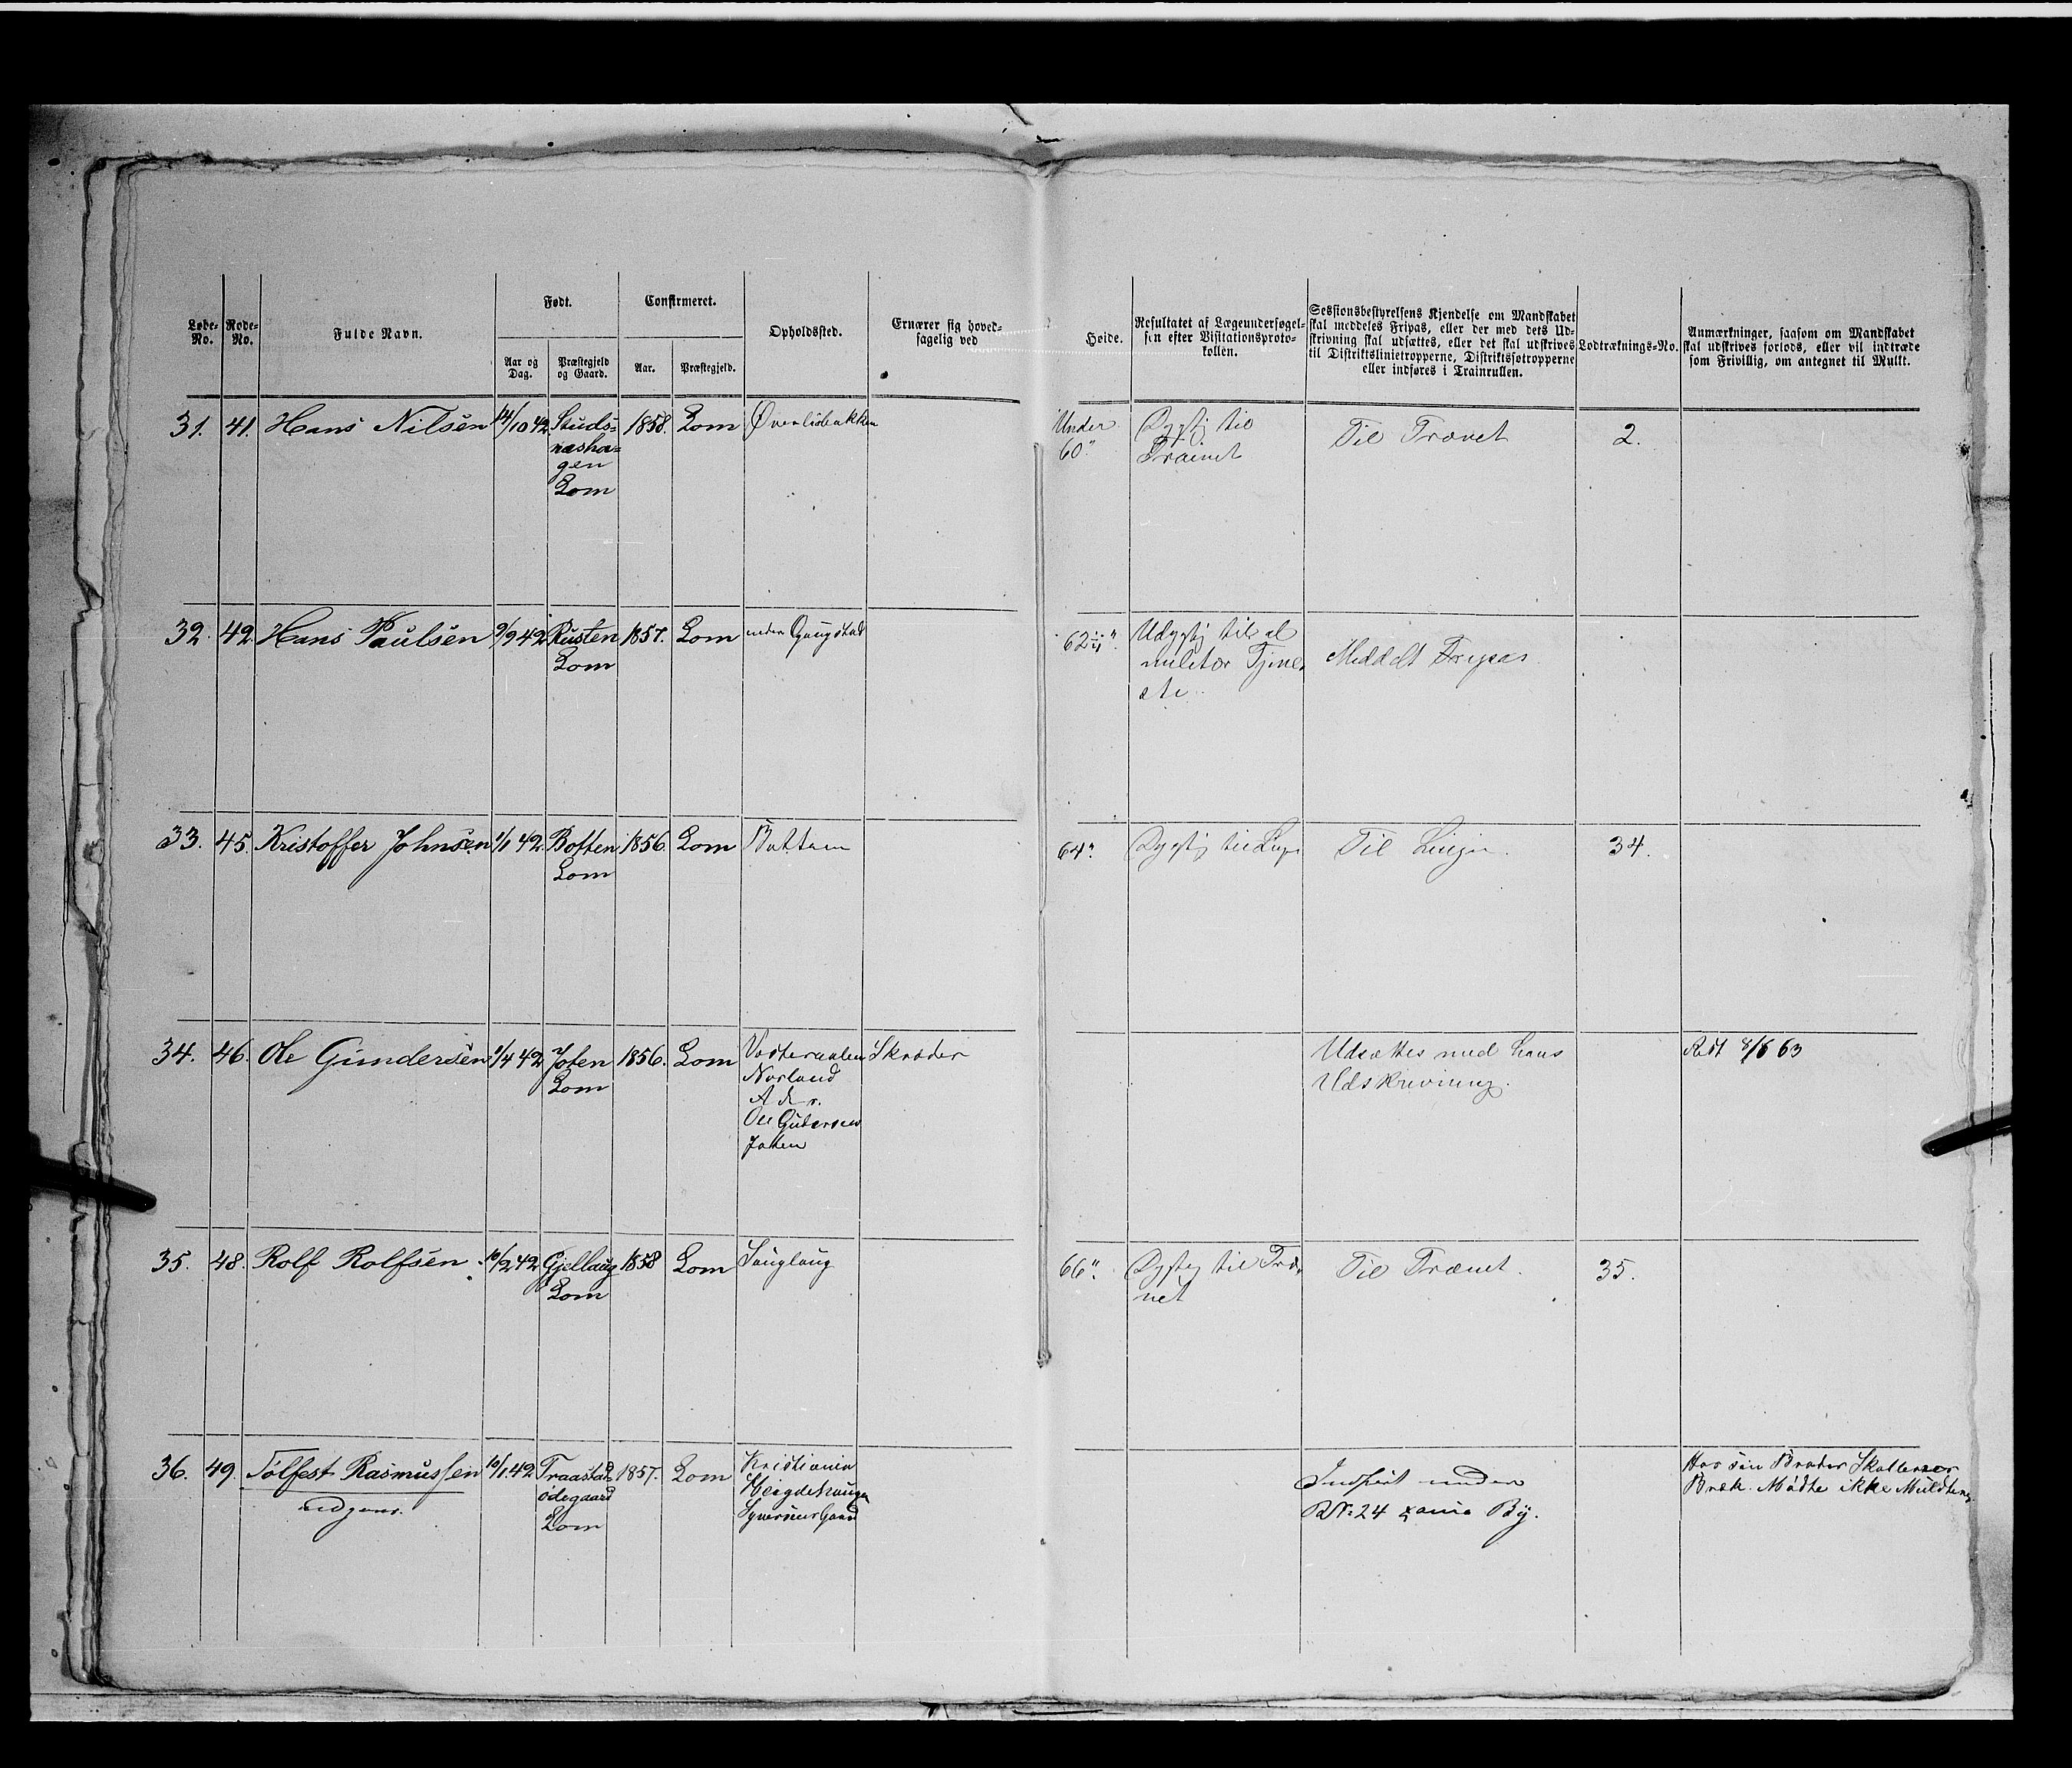 Løbe-No.
Rode-No.
Fulde Navn.
Født.
Aar og Dag.
Præstegjeld og Gaard.
Confirmeret.
Aar.
Præstegjeld.
Opholdssted.
Ernærer sig hoved-
sagelig ved
Høide.
Resultatet af Lægeundersøgel-
sen efter Visitationsproto-
kollen.
Sessionsbestyrelsens Kjendelse om Mandskabet
skal meddeles Fripas, eller der med dets Ud-
skrivning skal udsættes, eller det skal udskrives
til Distriktslinietropperne, Distriktsfotropperne
eller indføres i Trainrullen.
Lodtræknings-No.
Anmærkninger, saasom om Mandskabet
skal udskrives forlods, eller vil indtræde
som Frivillig, om antegnet til Mulkt.
31. 41. Hans Nilsen 14/10 42. Studs- 1858. Lom Øverlibakken Under Dygtig til Til Trænet 2.
næsha- 60" Trainet
gen
Lom
32. 42. Hans Paulsen 9/9 42 Rusten 1857. Lom under Gaugstad 62 Udygtig til al Meddelt Fripas
Lom militær Tjene-
ste
33. 45. Kristoffer Johnsen 1/1 42. Botten 1856. Lom Bottem 64" Dygtig til Linjen Til Linjen. 34.
Lom
34. 46. Ole Gundersen 1/4 42 Joten 1856. Lom Vesteraalen Skræder Udsættes med hans 8/6 63
Lom Norland Udskrivning.
Adr.
Ole Gudersen
Joten
35. 48. Rolf Rolfsen 10/2 42 Gjellaug 1858 Lom 66" Dygtig til Træ- Til Trænet. 35.
Lom net
36. 49. Tolfest Rasmussen 10/1 42 Traastad 1857. Lom Kristiania Indført under Hos sin Broder
udgaar. ødegaard RNo 24 Xania By. Mødte ikke
Lom Gaard